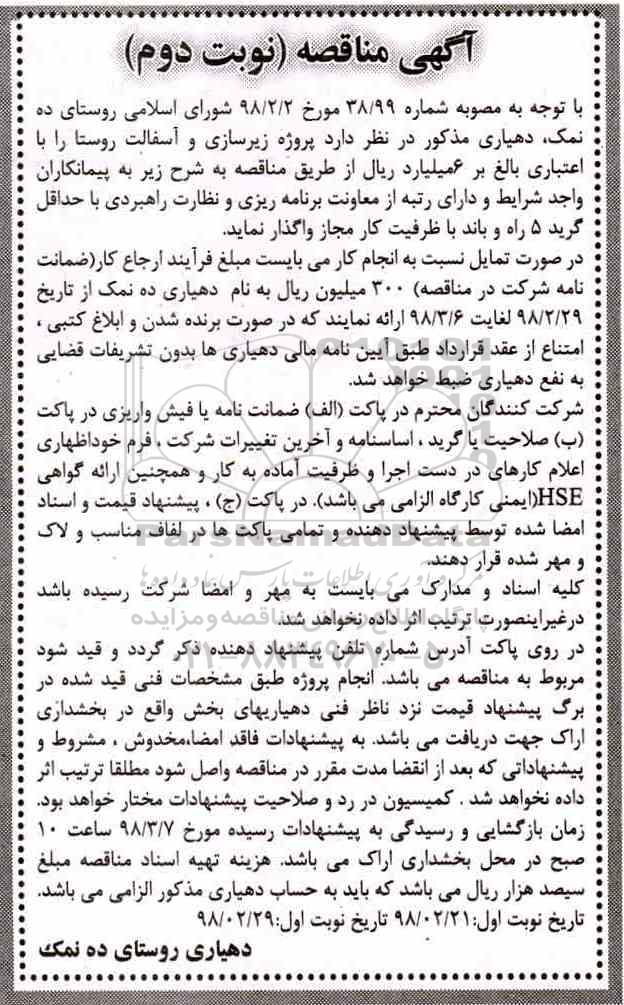 آگهی مناقصه (نوبت دوم)
با توجه به مصوبه شماره ۳۸/۹۹ مورخ ۹۸/۲/۲ شورای اسلامی روستای ده
نمک، دهیاری مذکور در نظر دارد پروژه زیرسازی و آسفالت روستا را با
اعتباری بالغ بر ۶میلیارد ریال از طریق مناقصه به شرح زیر به پیمانکاران
واجد شرایط و دارای رتبه از معاونت برنامه ریزی و نظارت راهبردی با حداقل
گرید ۵ راه و باند با ظرفیت کار مجاز واگذار نماید.
در صورت تمایل نسبت به انجام کار می بایست مبلغ فرآیند ارجاع کار(ضمانت
نامه شرکت در مناقصه) ۳۰۰ میلیون ریال به نام دهیاری ده نمک از تاریخ
۹۸/۲/۲۹ لغایت ۹۸/۳/۶ ارائه نمایند که در صورت برنده شدن و ابلاغ کتبی ،
امتناع از عقد قرارداد طبق آیین نامه مالی دهیاری ها بدون تشریفات قضایی
به نفع دهیاری ضبط خواهد شد.
شرکت کنندگان محترم در پاکت (الف) ضمانت نامه یا فیش واریزی در پاکت
(ب) صلاحیت یا گرید ، اساسنامه و آخرین تغییرات شرکت ، فرم خوداظهاری
اعلام کارهای در دست اجرا و ظرفیت آماده به کار و همچنین ارائه گواهی
HSE(ایمنی کارگاه الزامی می باشد). در پاکت (ج) ، پیشنهاد قیمت و اسناد
امضا شده توسط پیشنهاد دهنده و تمامی پاکت ها در لفاف مناسب و لاک
و مهر شده قرار دهند.
ParsNamadData
کلیه اسناد و مدارک می بایست به مهر و امضا شرکت رسیده باشد
درغیراینصورت ترتیب اثر داده نخواهد شد.
در روی پاکت آدرس شماره تلفن پیشنهاد دهنده ذکر گردد و قید شود
۰۲۱-۸۸۳۴۹۶۷۰-۵
مربوط به مناقصه می باشد. انجام پروژه طبق مشخصات فنی قید شده در
برگ پیشنهاد قیمت نزد ناظر فنی دهیاریهای بخش واقع در بخشداری
اراک جهت دریافت می باشد. به پیشنهادات فاقد امضا،مخدوش ، مشروط و
پیشنهاداتی که بعد از انقضا مدت مقرر در مناقصه واصل شود مطلقا ترتیب اثر
داده نخواهد شد . کمیسیون در رد و صلاحیت پیشنهادات مختار خواهد بود.
زمان بازگشایی و رسیدگی به پیشنهادات رسیده مورخ ۹۸/۳/۷ ساعت ۱۰
صبح در محل بخشداری اراک می باشد. هزینه تهیه اسناد مناقصه مبلغ
سیصد هزار ریال می باشد که باید به حساب دهیاری مذکور الزامی می باشد.
تاریخ نوبت اول:۹۸/۰۲/۲۱ تاریخ نوبت اول:۹۸/۰۲/۲۹
دهیاری روستای ده نمک